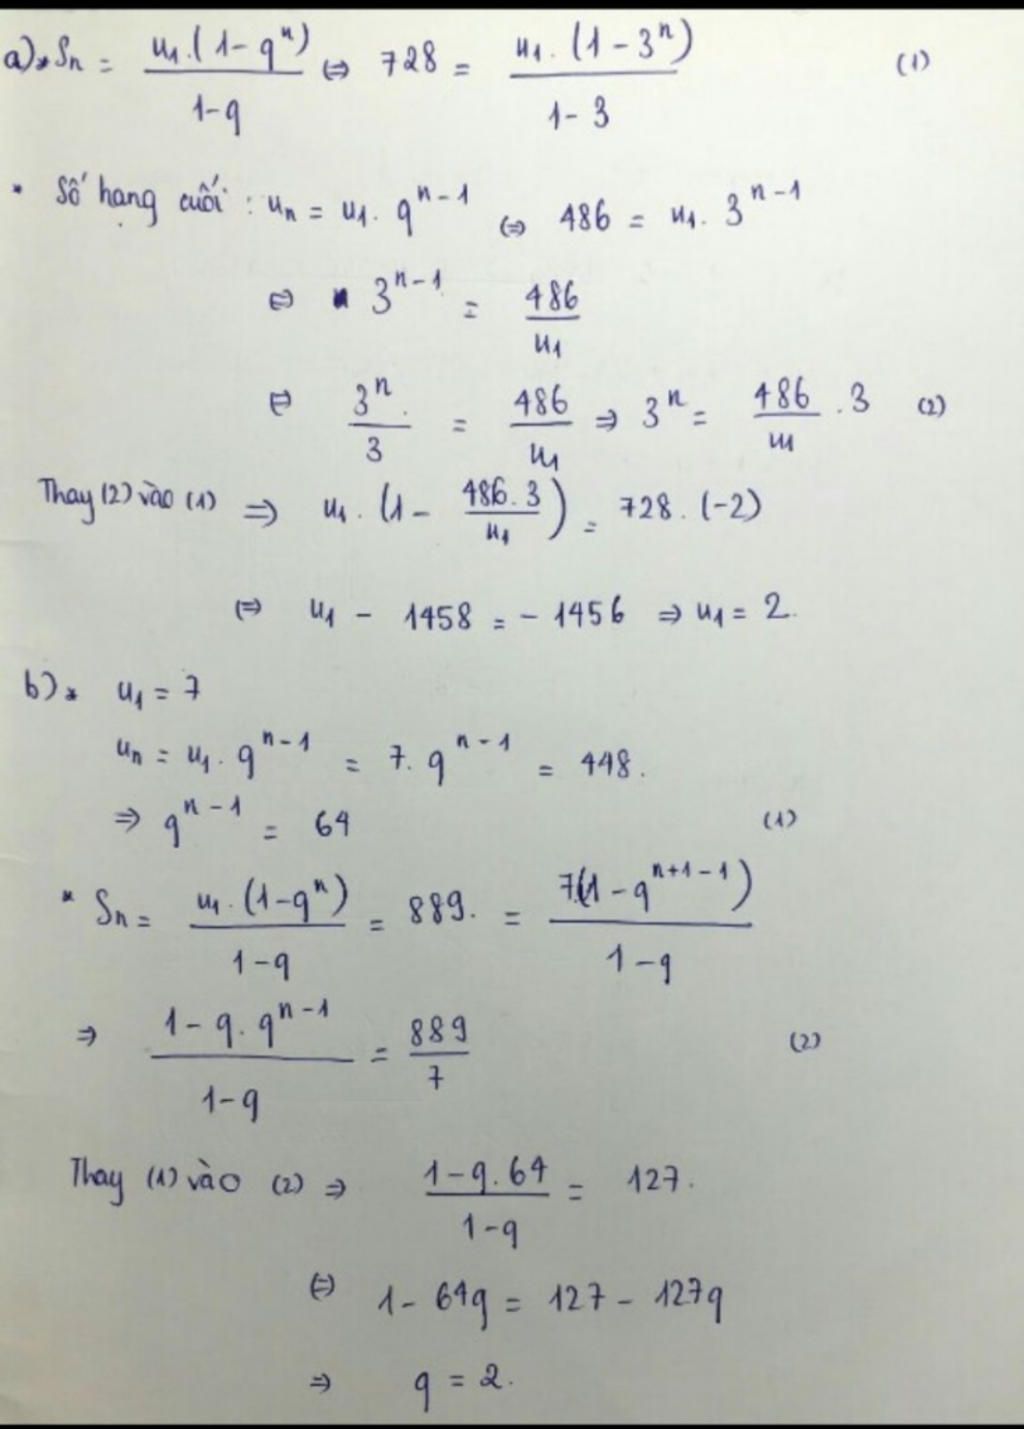 a) * Sn = u1.(1-q^n)/(1-q) ⇔ 728 = u1.(1-3^n)/(1-3) (1)
* Số hạng cuối : un = u1. q^(n-1) ⇔ 486 = u1. 3^(n-1)
⇔ 3^(n-1) = 486/u1
⇔ 3^n/3 = 486/u1 ⇒ 3^n = 486/u1 .3 (2)
Thay (2) vào (1) ⇒ u1. (1 - 486.3/u1) = 728. (-2)
⇔ u1 - 1458 = - 1456 ⇒ u1 = 2.
b) * u1 = 7
un = u1. q^(n-1) = 7. q^(n-1) = 448.
⇒ q^(n-1) = 64 (1)
* Sn = u1.(1-q^n)/(1-q) = 889. = 7(1-q^(n+1-1))/(1-q)
⇒ (1-q.q^(n-1))/(1-q) = 889/7 (2)
Thay (1) vào (2) ⇒ (1-q.64)/(1-q) = 127.
⇔ 1- 64q = 127 - 127q
⇒ q = 2.